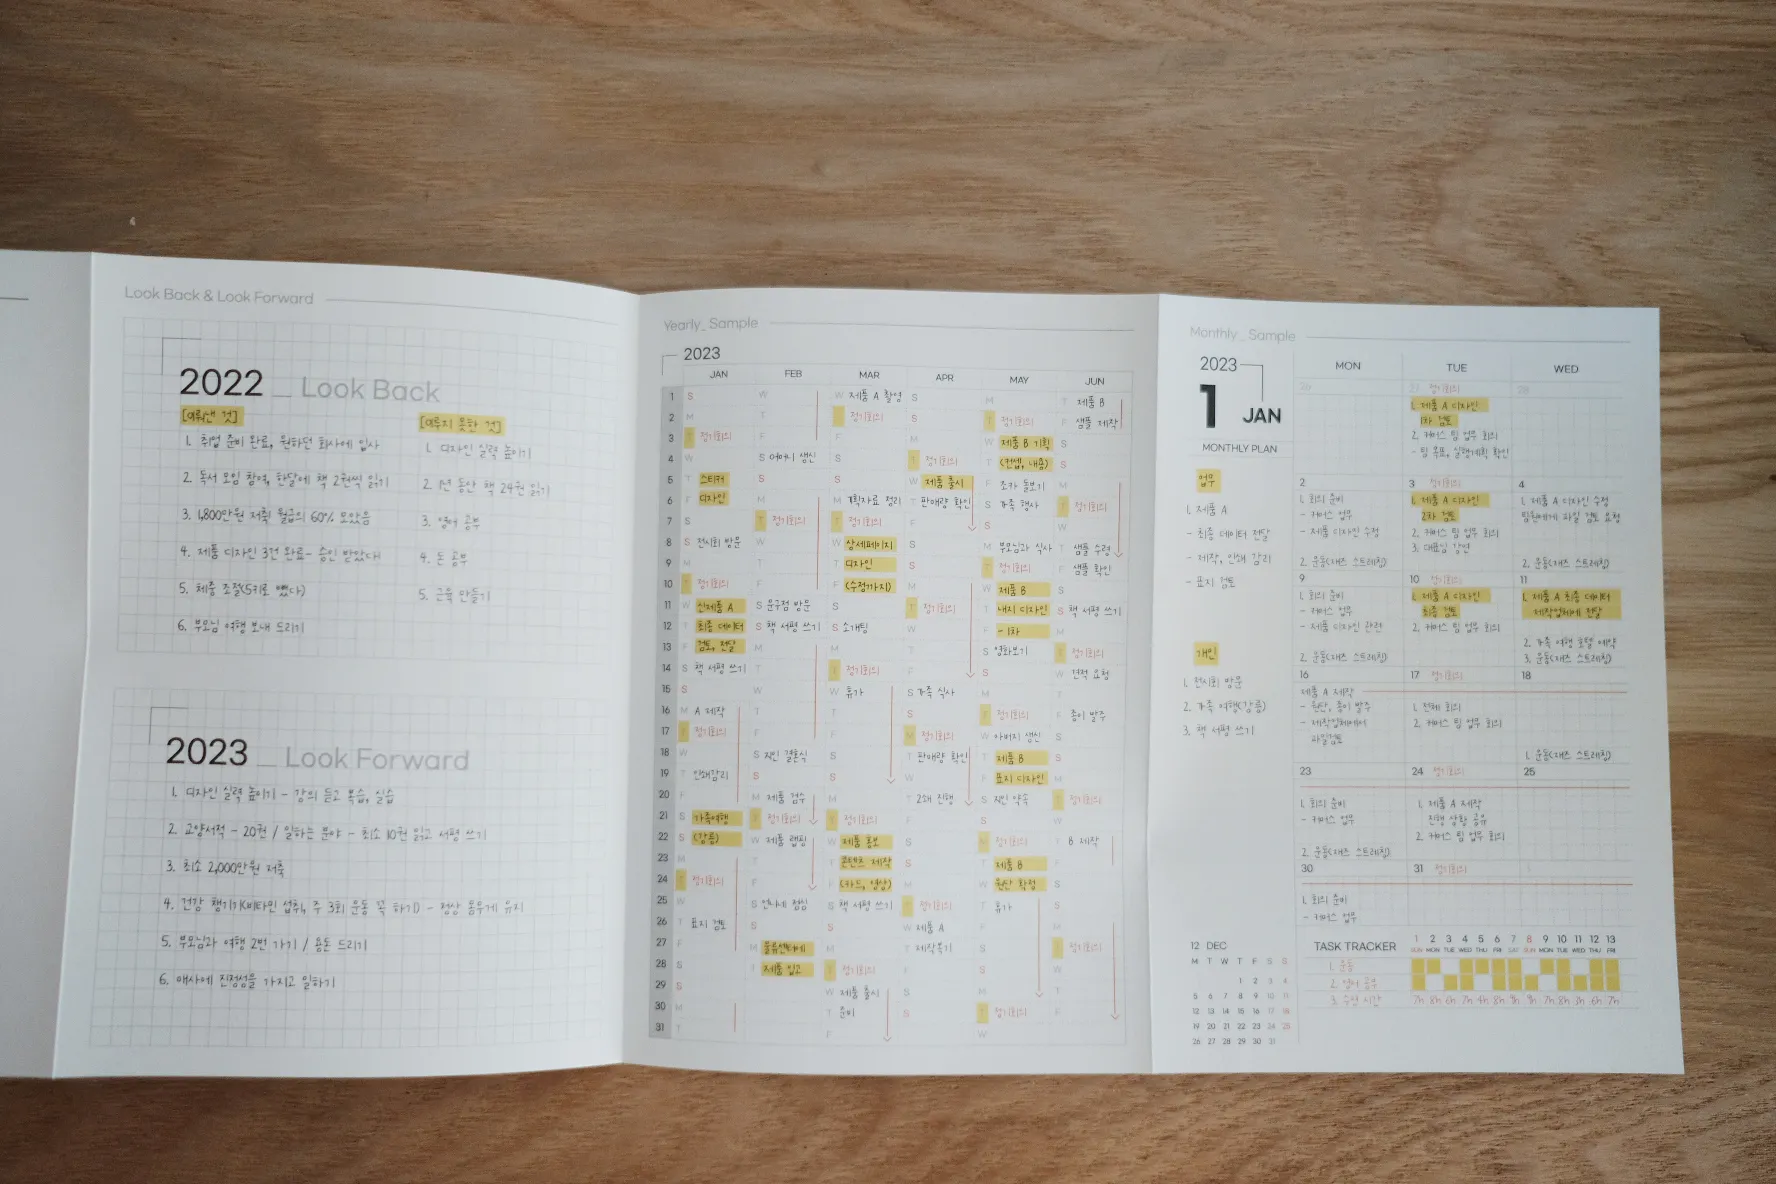 Look Back & Look Forward
2022 _ Look Back
[이뤄낸 것]
1. 취업 준비 완료, 원하던 회사에 입사
2. 독서 모임 참여, 한달에 책 2권씩 읽기
3. 1,800만원 저축 월급의 60% 모았음
4. 제품 디자인 3건 완료- 승인 받았다!
5. 체중 조절(5키로 뺐다)
6. 부모님 여행 보내 드리기
[이루지 못한 것]
1. 디자인 실력 높이기
2. 1년 동안 책 24권 읽기
3. 영어 공부
4. 돈 공부
5. 근육 만들기
2023 _ Look Forward
1. 디자인 실력 높이기 - 강의 듣고 복습, 실습
2. 교양서적 - 20권 / 일하는 분야 - 최소 10권 읽고 서평 쓰기
3. 최소 2,000만원 저축
4. 건강 챙기기(비타민 섭취, 주 3회 운동 꼭 하기!) - 정상 몸무게 유지
5. 부모님과 여행 2번 가기 / 용돈 드리기
6. 매사에 진정성을 가지고 일하기
Yearly_ Sample
2023
JAN
3 정기회의
5 스티커
6 디자인
8 전시회 방문
10 정기회의
11 신제품 A
12 최종 데이터
13 검토, 전달
14 책 서평 쓰기
16 A 제작
17 정기회의
19 인쇄감리
21 가족여행
22 (강릉)
24 정기회의
26 표지 검토
FEB
어머니 생신
정기회의
문구점 방문
책 서평 쓰기
지인 결혼식
제품 검수
정기회의
제품 랩핑
언니네 점심
물류센터에
제품 입고
MAR
제품 A 촬영
정기회의
기획자료 정리
정기회의
상세페이지
디자인
(수정까지)
소개팅
정기회의
휴가
정기회의
제품 홍보
콘텐츠 제작
(카드, 영상)
책 서평 쓰기
정기회의
제품 출시
준비
APR
정기회의
제품 출시
판매량 확인
정기회의
가족 식사
정기회의
판매량 확인
2쇄 진행
정기회의
제품 A
제작복기
MAY
정기회의
제품 B 기획
(컨셉, 내용)
조카 돌보기
가족 행사
부모님과 식사
정기회의
제품 B
내지 디자인
- 1차
영화보기
정기회의
아버지 생신
제품 B
표지 디자인
지인 약속
정기회의
제품 B
원단 확정
휴가
정기회의
JUN
제품 B
샘플 제작
정기회의
샘플 수령
샘플 확인
책 서평 쓰기
정기회의
견적 요청
종이 발주
정기회의
B 제작
정기회의
Monthly_ Sample
2023
1 JAN
MONTHLY PLAN
업무
1. 제품 A
- 최종 데이터 전달
- 제작, 인쇄 감리
- 표지 검토
개인
1. 전시회 방문
2. 가족 여행(강릉)
3. 책 서평 쓰기
12 DEC
M T W T F S S
1 2 3 4
5 6 7 8 9 10 11
12 13 14 15 16 17 18
19 20 21 22 23 24 25
26 27 28 29 30 31
MON TUE WED
26
27 정기회의
1. 제품 A 디자인
1차 검토
2. 커머스 팀 업무 회의
- 팀 목표, 실행계획 확인
28
2
1. 회의 준비
- 커머스 업무
- 제품 디자인 수정
2. 운동(재즈 스트레칭)
3 정기회의
1. 제품 A 디자인
2차 검토
2. 커머스 팀 업무 회의
3. 대표님 강연
4
1. 제품 A 디자인 수정
팀원에게 파일 검토 요청
2. 운동(재즈 스트레칭)
9
1. 회의 준비
- 커머스 업무
- 제품 디자인 관련
2. 운동(재즈 스트레칭)
10 정기회의
1. 제품 A 디자인
최종 검토
2. 커머스 팀 업무 회의
11
1. 제품 A 최종 데이터
제작업체에 전달
2. 가족 여행 호텔 예약
3. 운동(재즈 스트레칭)
16
제품 A 제작
- 원단, 종이 발주
- 제작업체에서
파일검토
17 정기회의
1. 전체 회의
2. 커머스 팀 업무 회의
18
1. 운동(재즈 스트레칭)
23
1. 회의 준비
- 커머스 업무
2. 운동(재즈 스트레칭)
24 정기회의
1. 제품 A 제작
진행 상황 공유
2. 커머스 팀 업무 회의
25
30
1. 회의 준비
- 커머스 업무
31 정기회의
TASK TRACKER
1 2 3 4 5 6 7 8 9 10 11 12 13
SUN MON TUE WED THU FRI SAT SUN MON TUE WED THU FRI
1. 운동
2. 영어 공부
3. 수면 시간